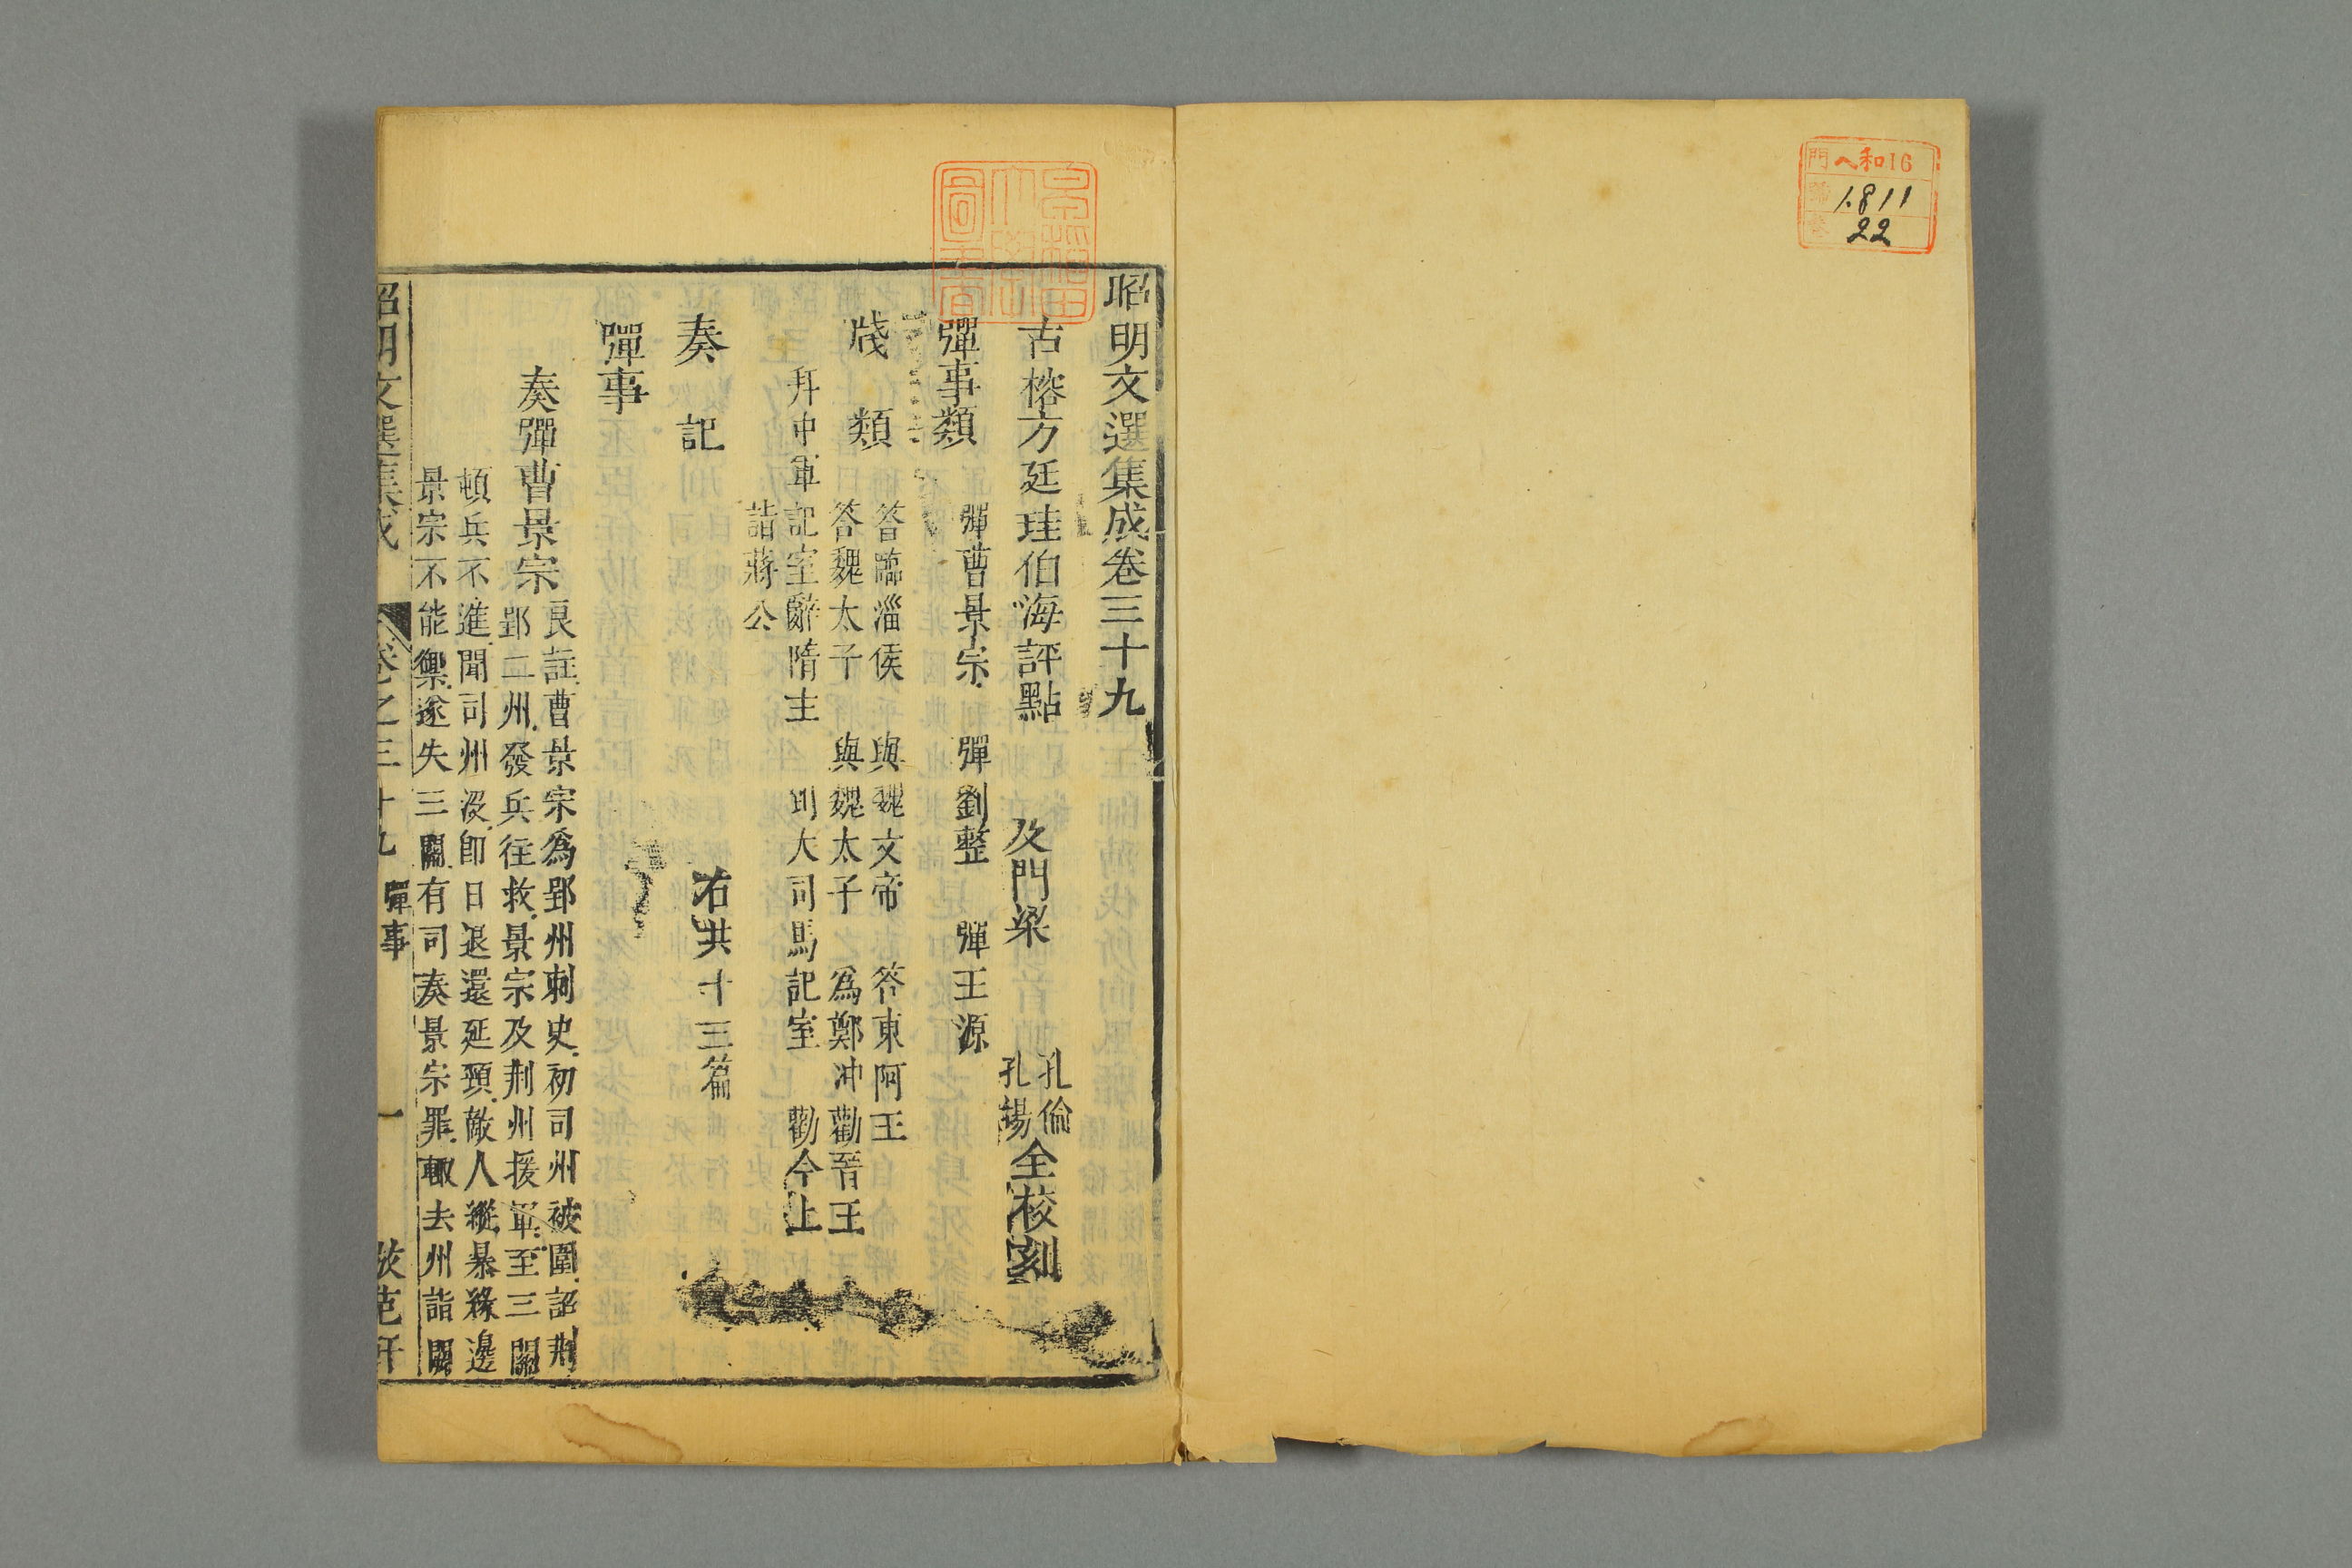 門 ヘ和16
號 1.811
卷 22
早稲田大學圖書
昭明文選集成卷三十九
古榕方廷珪伯海評點 及門梁 孔倫 孔揚 仝校刻
彈事類
彈曹景宗 彈劉整 彈王源
牋類
答臨淄侯 與魏文帝 答東阿王
答魏太子 與魏太子 為鄭冲勸晉王
拜中軍記室辭隋主 到大司馬記室 勸今上
奏記
詣蔣公
右共十三篇
彈事
奏彈曹景宗
良註曹景宗為郢州刺史初司州被圍詔荆
郢二州發兵往救景宗及荆州援軍至三關
頓兵不進聞司州沒即日退還延頸敵人縱暴緣邊
景宗不能禦遂失三關有司奏景宗罪輙去州詣闕
昭明文選集成 卷之三十九 彈事 一 倣范軒